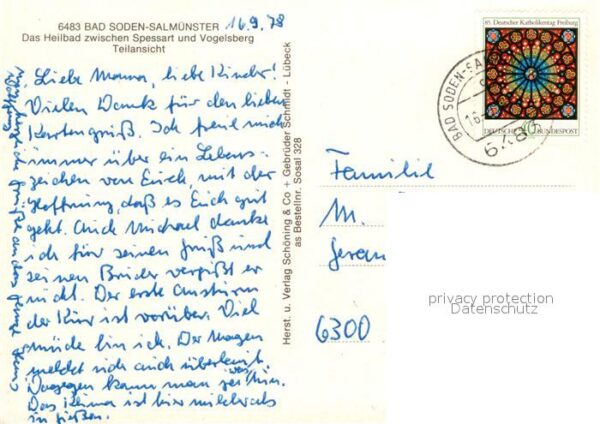 6483 BAD SODEN-SALMÜNSTER 16.9.78
Das Heilbad zwischen Spessart und Vogelsberg
Teilansicht
Liebe Mama, liebe Kinder!
Vielen Dank für den lieben
Kartengruß. Ich freue mich
immer über ein Lebens-
zeichen von Euch, mit der
Hoffnung, daß es Euch gut
geht. Auch Michael danke
ich für seinen Gruß und
seinen Bruder vergißt er
nicht. Der erste Ansturm
der Kur ist vorüber. Viel
müde bin ich. Der Magen
meldet sich auch überlaut
Dagegen kann man was tun.
Das Klima ist hier niemals
in
herzliche Grüße an das ganze Haus
Wolfgang
Herst. u. Verlag Schöning & Co + Gebrüder Schmidt - Lübeck
as Bestellnr. Sosal 328
85. Deutscher Katholikentag Freiburg
DEUTSCHE 40 BUNDESPOST
BAD SODEN-SA
6483
Familie
M.
6300
privacy protection
Datenschutz